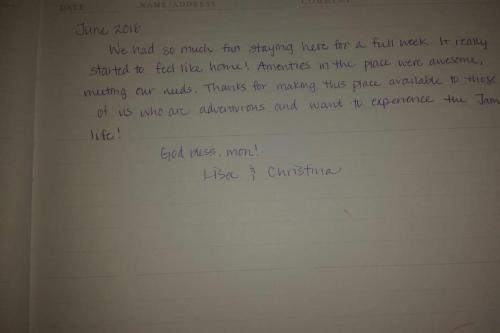 DATE NAME/ADDRESS COMMENT
June 2016
We had so much fun staying here for a full week. It really
started to feel like home! Amenties in the place were awesome,
meeting our needs. Thanks for making this place available to those
of us who are adventurous and want to experience the Jam
life!
God bless, mon!
Lisa & Christina